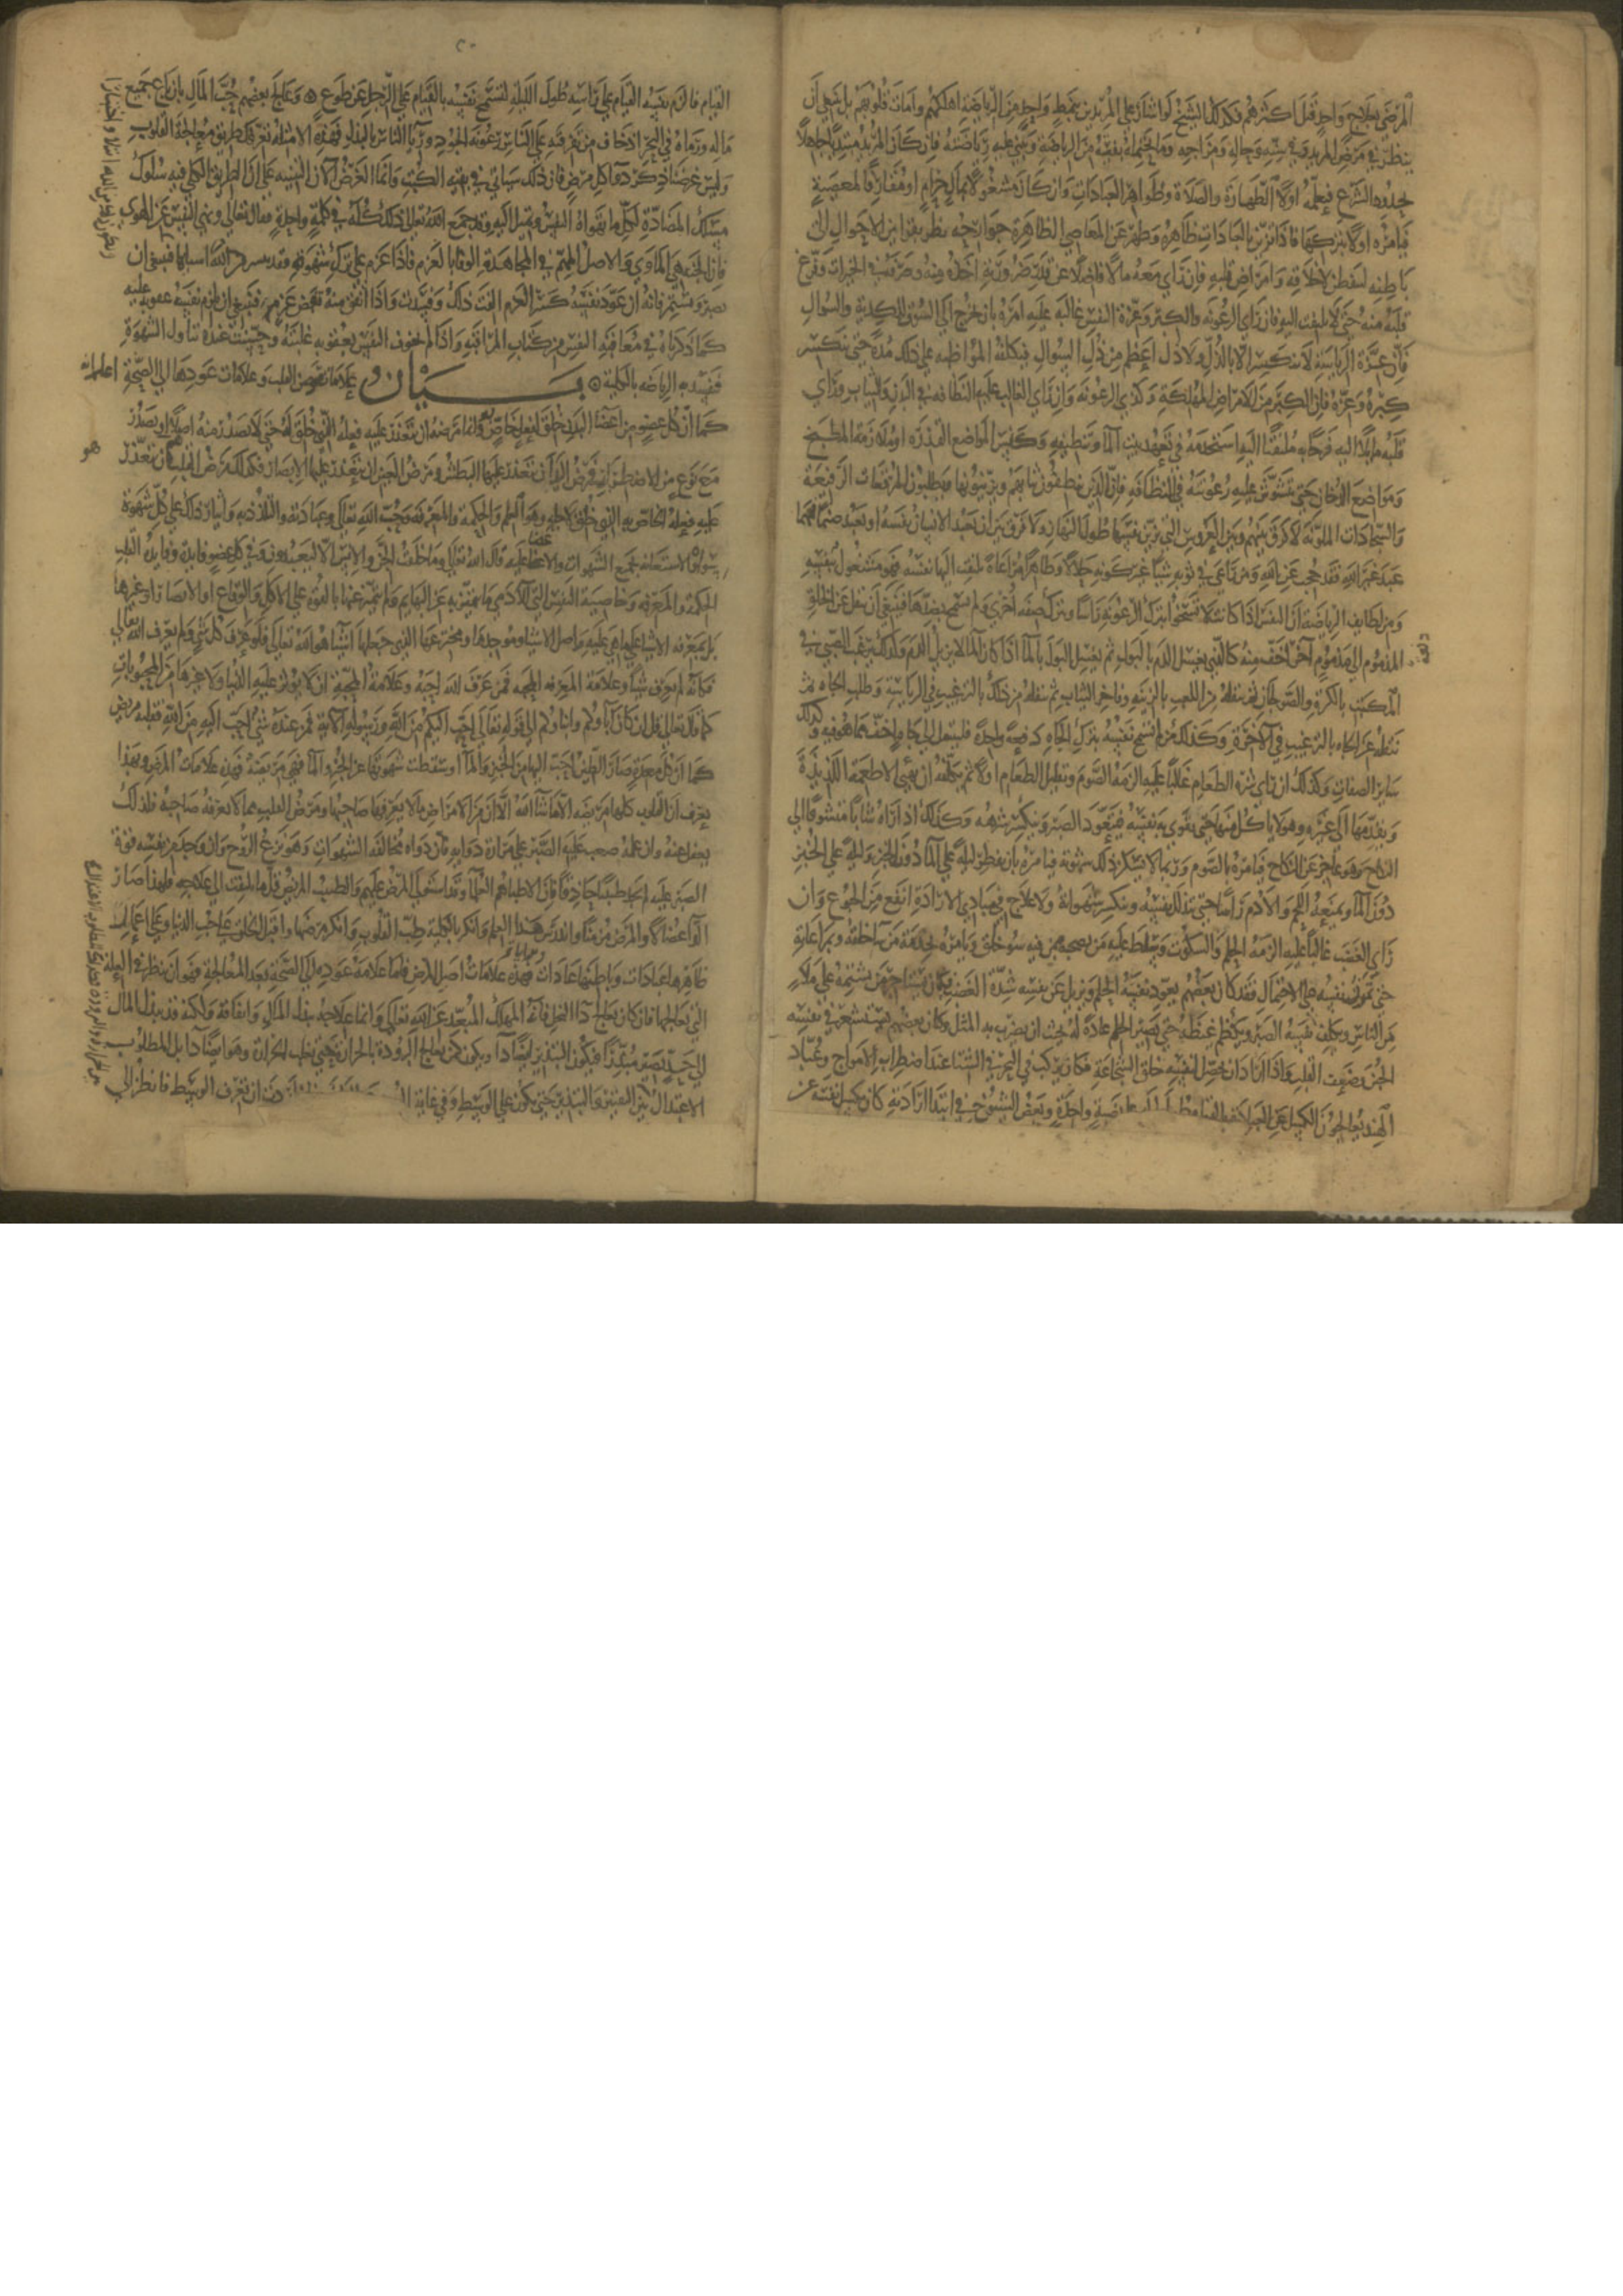 المرضى بعلاج واحد قتل اكثرهم فكذلك الشيخ لو اشار على المريدين بنمط واحد من الرياضة اهلكهم وامات قلوبهم بل ينبغي أن
ينظر في مرض المريد وفي سنه وحاله ومزاجه وما تحتمله نفسه من الرياضة ويبني عليه رياضته فان كان المريد مبتديا جاهلا
بحدود الشرع فيعلمه اولا الطهارة والصلاة وظواهر العبادات وان كان مشغولا بمال حرام او مقارفا لمعصية
فيأمره اولا بتركها فاذا تزين بالعبادات ظاهره وطهر عن المعاصي الظاهرة جوارحه نظر بقراين الاحوال الى
باطنه لتفطن لاخلاقه وامراض قلبه فان راي معه مالا فاضلا عن قدر ضرورته اخذه منه وصرفه في الخيرات وفرغ
قلبه منه حتى لا يلتفت اليه وان راي الرعونة والكبر وعزة النفس غالبة عليه امره بان يخرج الى السوق للكدية والسوال
فان عزة الرياسة لا تنكسر الا بالذل ولا ذل اعظم من ذل السوال فيكلفه المواظبة على ذلك مدة حتى ينكسر
كبره وعزه فان الكبر من الامراض المهلكة وكذي الرعونة وان راي الغالب عليه النظافة في البدن والثياب وراي
قلبه مايلا اليه فرحا به ملتفتا اليه استخدمه في تعهد بيت الما وتنظيفه وكنس المواضع القذرة او ملازمة المطبخ
ومواضع الدخان حتى تتشوش عليه رعونته في النظافة فان الذين ينظفون ثيابهم ويزينونها ويطلبون المرقعات الرفيعة
والسجادات الملونة لا فرق بينهم وبين العروس التي تزين نفسها طول النهار ولا فرق بين ان يعبد الانسان نفسه او يعبد صنما فمهما
عبد غير الله فقد حجب عن الله ومن راعى في ثوبه شيا غير كونه حلالا وطاهرا مراعاة تلتفت اليها نفسه فهو مشغول بنفسه
ومن لطايف الرياضة ان النفس اذا كانت لا تسخوا بترك الرعونة راسا وبترك صفة أخرى ولم تسمح بضدها فينبغي أن ينقل عن الخلق
المذموم الى مذموم آخر أخف منه كالذي يغسل الدم بالبول ثم يغسل البول بالما اذا كان الما لا يزيل الدم وكذلك يرغب الصبي في
دفعة
المكتب بالكرة والصولجان ثم ينقله من اللعب بالزينة وفاخر الثياب ثم ينقله من ذلك بالترغيب في الرياسة وطلب الجاه ثم
ينقله عن الجاه بالترغيب في الآخرة وكذلك من لم تسمح نفسه بترك الجاه دفعة واحدة فلينقل الى جاه اخف مما هو فيه وكذلك
ساير الصفات وكذلك ان راي شره الطعام غالبا عليه الزمه الصوم وتقليل الطعام اولا ثم يكلفه ان يهيى الاطعمة اللذيذة
ويقدمها الى غيره وهو لا ياكل منها حتى تقوى به نفسه فيتعود الصبر وينكسر شرهه وكذلك اذا راه شابا متشوقا الى
النكاح وهو عاجز عن النكاح فيامره بالصوم وربما لا ينكسر ذلك شهوته فيامره بان يفطر ليلة على الما دون الخبز وليلة على الخبز
دون الما ويمنعه اللحم والادم راسا حتى تذل نفسه وتنكسر شهواته ولا علاج في مبادي الارادة انفع من الجوع وان
راي الغضب غالبا عليه الزمه الحلم والسكوت وسلط عليه من يصحبه ممن فيه سو خلق ويامره بخدمة من ساخلقه ويراعاة
حتى تمرن نفسه على الاحتمال فقد كان بعضهم يعود نفسه الحلم ويزيل عن نفسه شدة الغضب فكان يستاجر من يشتمه على ملا
من الناس ويكلف نفسه الصبر ويكظم غيظه حتى يصير الحلم عادة له بحيث ان يضرب به المثل وكان بعضهم يستشعر في نفسه
الجبن وضعف القلب فاذا اراد ان يحصل لنفسه خلق الشجاعة فكان يركب في البحر في الشتا عند اضطراب الامواج وعباد
الهند يعالجون الكسل عن العبادة بالقيام واحدة وبعض الشيوخ في ابتدا ارادته كان يكسل نفسه عن
القيام فالزم نفسه القيام على راسه طول الليل لتسمح نفسه بالقيام على الرجل عن طوع وعالج بعضهم حب المال بان باع جميع
ماله ورماه في البحر اذ خاف من تفرقته على الناس رعونة الجود وريا الناس بالبذل فهذه الامثلة تعرفك طريق معالجة القلوب
وليس غرضنا ذكر دوا كل مرض فان ذلك سياتي في بقية الكتب وانما الغرض الآن التنبيه على ان الطريق الكلي فيه سلوك
مسلك المضادة لكل ما تهواه النفس وتميل اليه وقد جمع الله تعالى ذلك كله في كلمة واحدة فقال تعالى ونهى النفس عن الهوى
فان الجنة هي الماوي والاصل المهم في المجاهدة الوفا بالعزم فاذا عزم على ترك شهوة فقد يسر الله اسبابها فينبغي ان
يصبر ويستمر فانه ان عود نفسه كسر العزم الفت ذلك وفسدت واذا اتفق منه نقض عزم فينبغي ان يلزم نفسه عقوبة عليه
كما ذكرناه في معاقبة النفس من كتاب المراقبة واذا لم يخوف النفس بعقوبة غلبته وحسنت عنده تناول الشهوة
فتفسد به الرياضة بالكلية بيان علامات مرض القلب وعلامات عودها الى الصحة اعلم ان
كما ان كل عضو من اعضا البدن خلق لفعل خاص به وانما مرضه ان يتعذر عليه فعله الذي خلق له حتى لا يصدر منه اصلا او يصدر
مع نوع من الاضطراب فمرض اليد ان يتعذر عليها البطش ومرض العين ان يتعذر عليها الابصار فكذلك مرض القلب ان يتعذر
هو
عليه فعله الخاص به الذي خلق لاجله وهو العلم والحكمة والمعرفة وحب الله تعالى وعبادته والتلذذ به وايثار ذلك على كل شهوة
سواه والاستعانة بجميع الشهوات والاعضا عليه قال الله تعالى وما خلقت الجن والانس الا ليعبدون ففي كل عضو فايدة وفايدة القلب
الحكمة والمعرفة وخاصية النفس التي للآدمي ما يتميز به عن البهايم ولم يتميز عنها بالقوة على الاكل والوقاع او الابصار او غيرها
بل بمعرفة الاشيا على ما هي عليه واصل الاشيا وموجدها ومخترعها الذي جعلها أشيا هو الله تعالى فلو عرف كل شي ولم يعرف الله تعالى
فكأنه لم يعرف شيا وعلامة المعرفة المحبة فمن عرف الله احبه وعلامة المحبة ان لا يوثر عليه الدنيا ولا غيرها من المحبوبات
كما قال تعالى قل ان كان آباوكم وابناوكم الى قوله تعالى أحب اليكم من الله ورسوله الآية فمن عنده شي احب اليه من الله فقلبه مريض
كما ان كل معدة صار الطين احب اليها من الخبز والما او سقطت شهوتها عن الخبز والما فهي مريضة فهذه علامات المرض وبهذا
يعرف ان القلوب كلها مريضة الا ما شا الله الا ان من الامراض ما لا يعرفها صاحبها ومرض القلب مما لا يعرفه صاحبه فلذلك
يغفل عنه وان علمه صعب عليه الصبر على مرارة دوايه فان دواه مخالفة الشهوات وهو نزع الروح وان وجد من نفسه قوة
الصبر عليه لم يجد طبيبا حاذقا فان الاطبا هم العلما وقد استولى المرض عليهم والطبيب المريض قلما يلتفت الى علاجه فلهذا صار
الدا عضالا والمرض مزمنا واندرس هذا العلم وانكر بالكلية طب القلوب وانكر مرضها واقبل الخلق على حب الدنيا وعلى اعمال
ظاهرها عبادات وباطنها عادات ومرايات فهذه علامات اصل المرض فاما علامة عوده الى الصحة بعد المعالجة فهو ان ينظر في العلة
التي يعالجها فان كان يعالج دا البخل فانه المهلك المبعد عن الله تعالى وانما علاجه ببذل المال وانفاقه ولكنه قد يبذل المال
الى حد يصير مبذرا فيكون التبذير ايضا دا ويكون كمن يعالج البرودة بالحرارة حتى تغلب الحرارة وهو ايضا دا بل المطلوب
الاعتدال بين التقتير والتبذير حتى يكون على الوسط وفي غاية ان تعرف الوسط فانظر الى